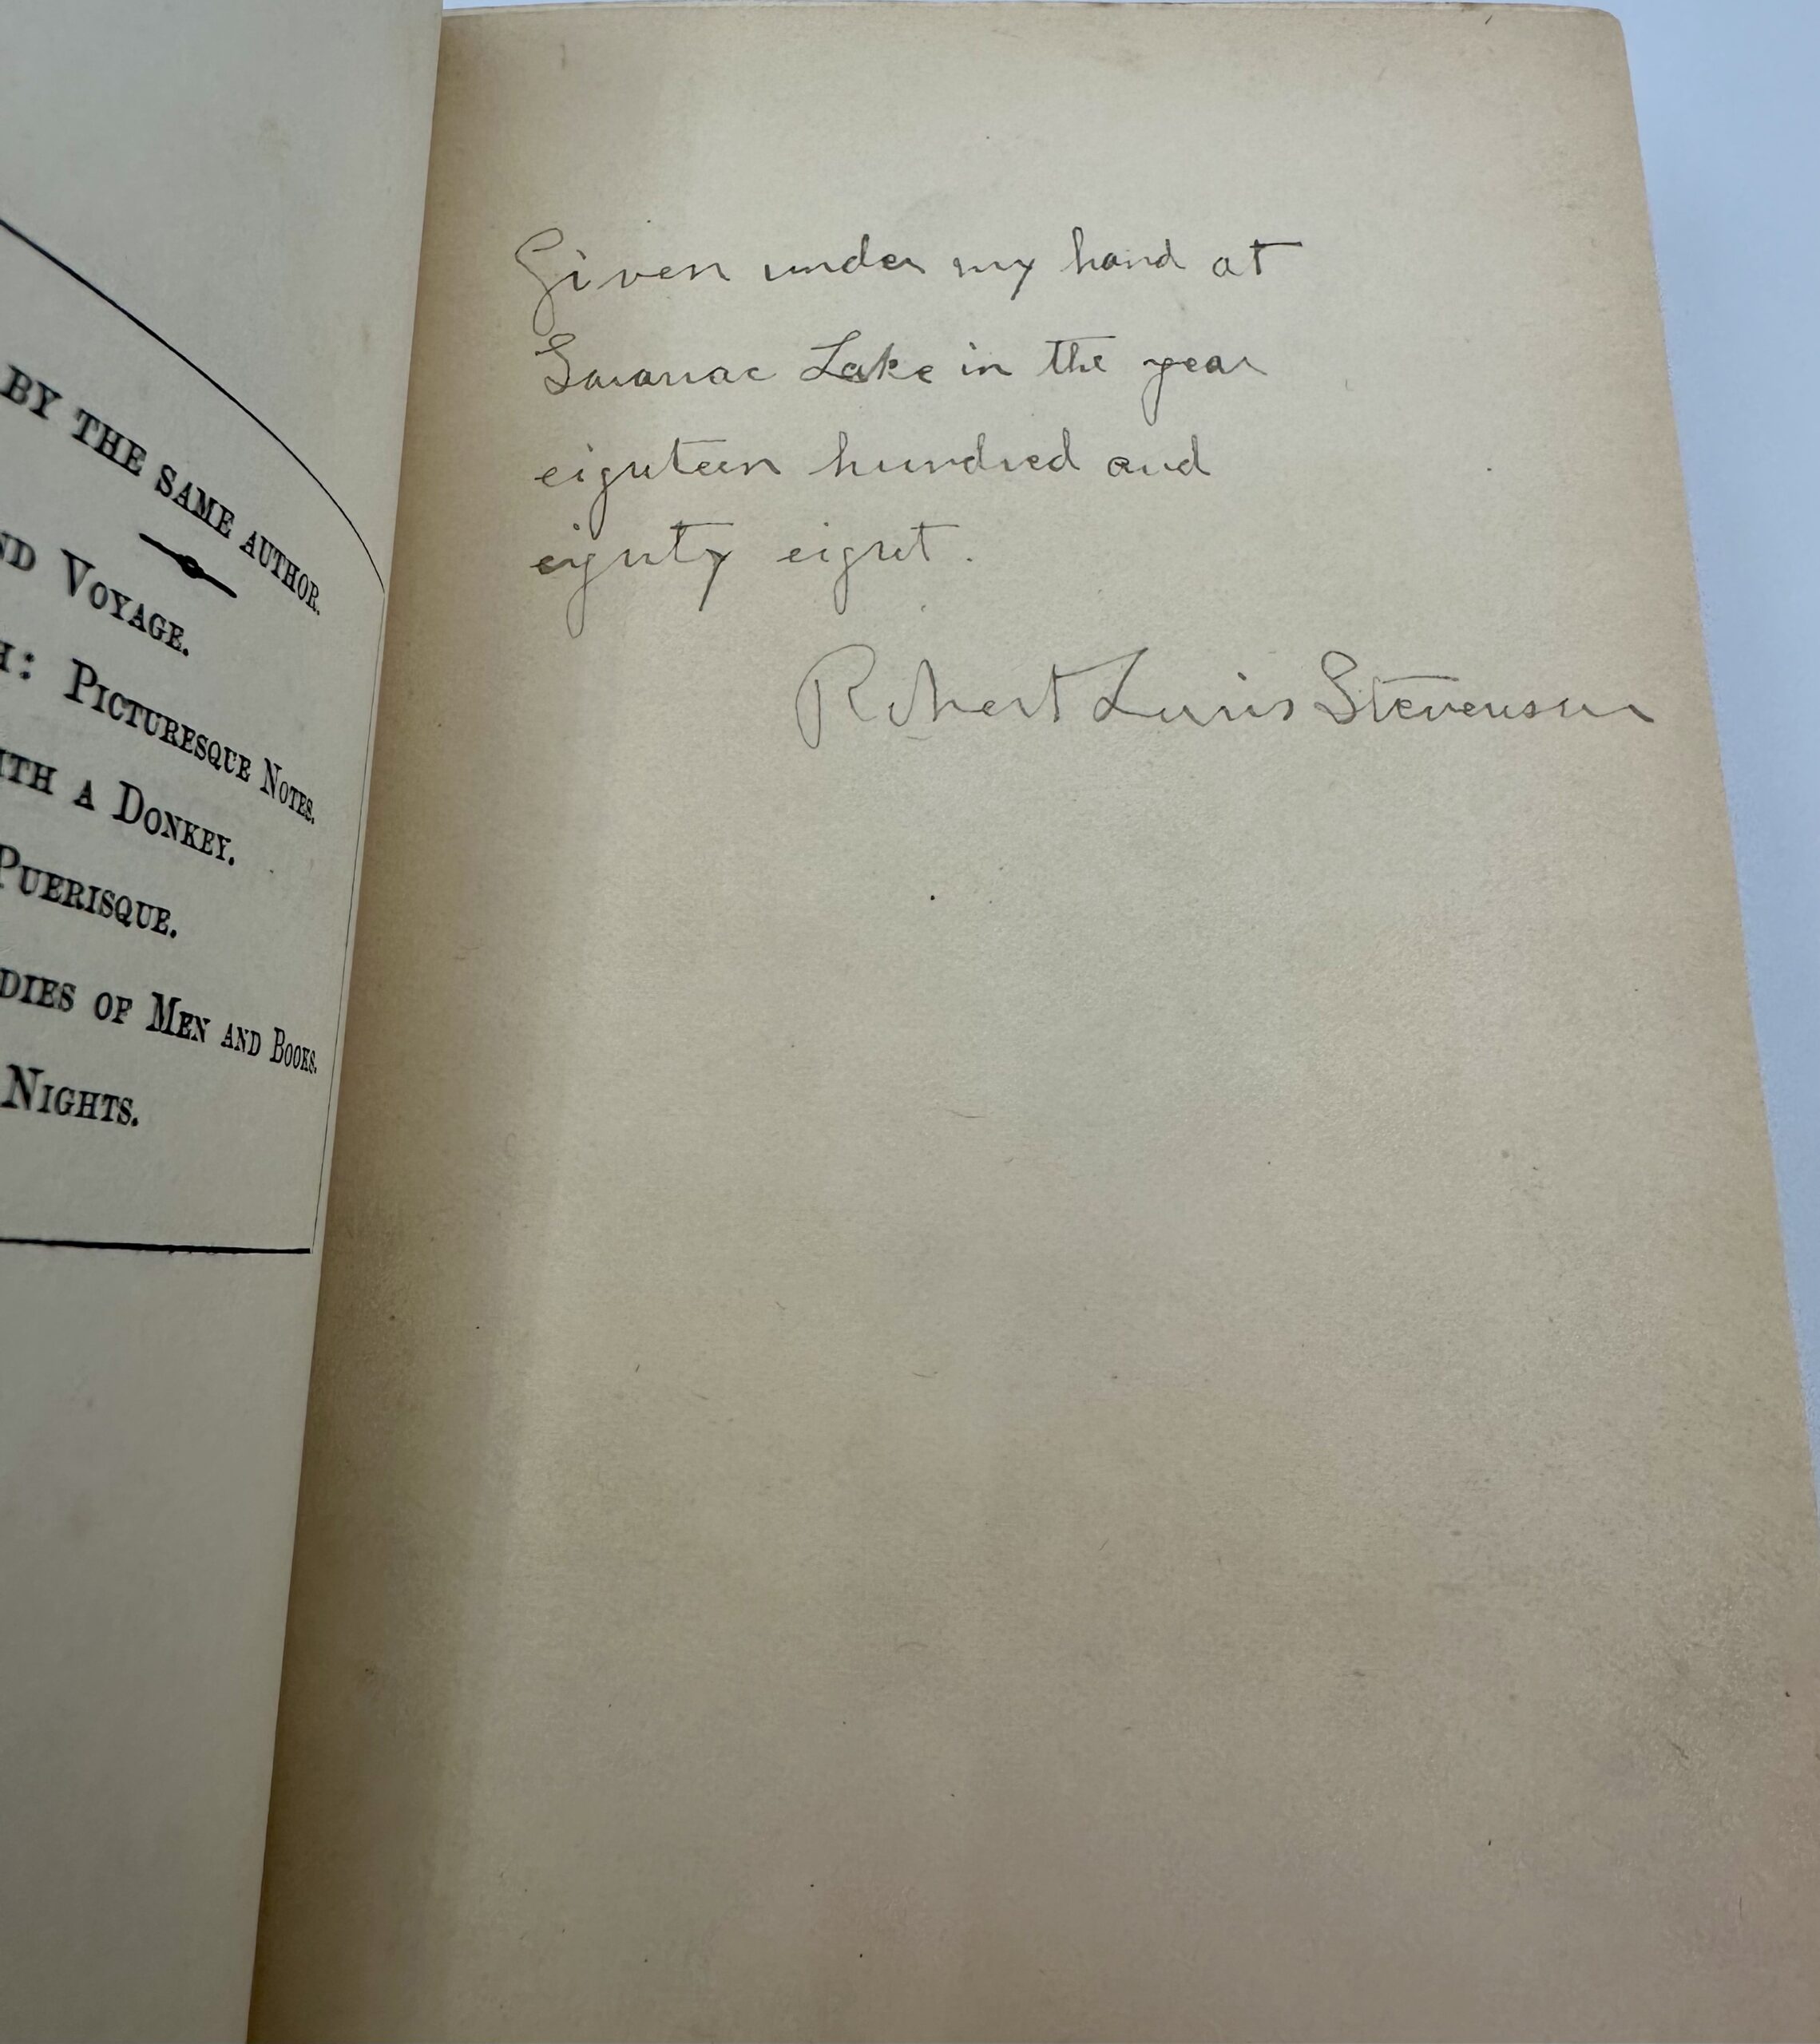 BY THE SAME AUTHOR.
ND VOYAGE.
H: PICTURESQUE NOTES.
ITH A DONKEY.
PUERISQUE.
DIES OF MEN AND BOOKS.
NIGHTS.
Given under my hand at
Saranac Lake in the year
eighteen hundred and
eighty eight.
Robert Louis Stevenson